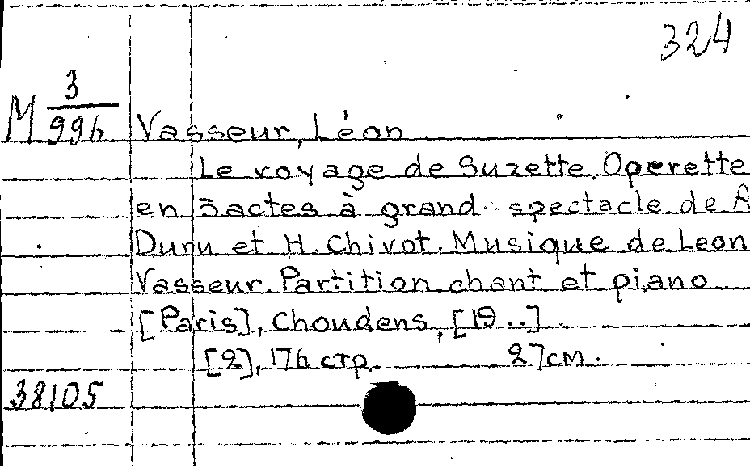 324
M 3/996 Vasseur, Léon
Le voyage de Suzette. Operette
en 3 actes à grand spectacle de A
Duru et H. Chivot. Musique de Leon
Vasseur. Partition chant et piano
[Paris], Choudens, [19..]
[2], 176 стр. 27см.
38105